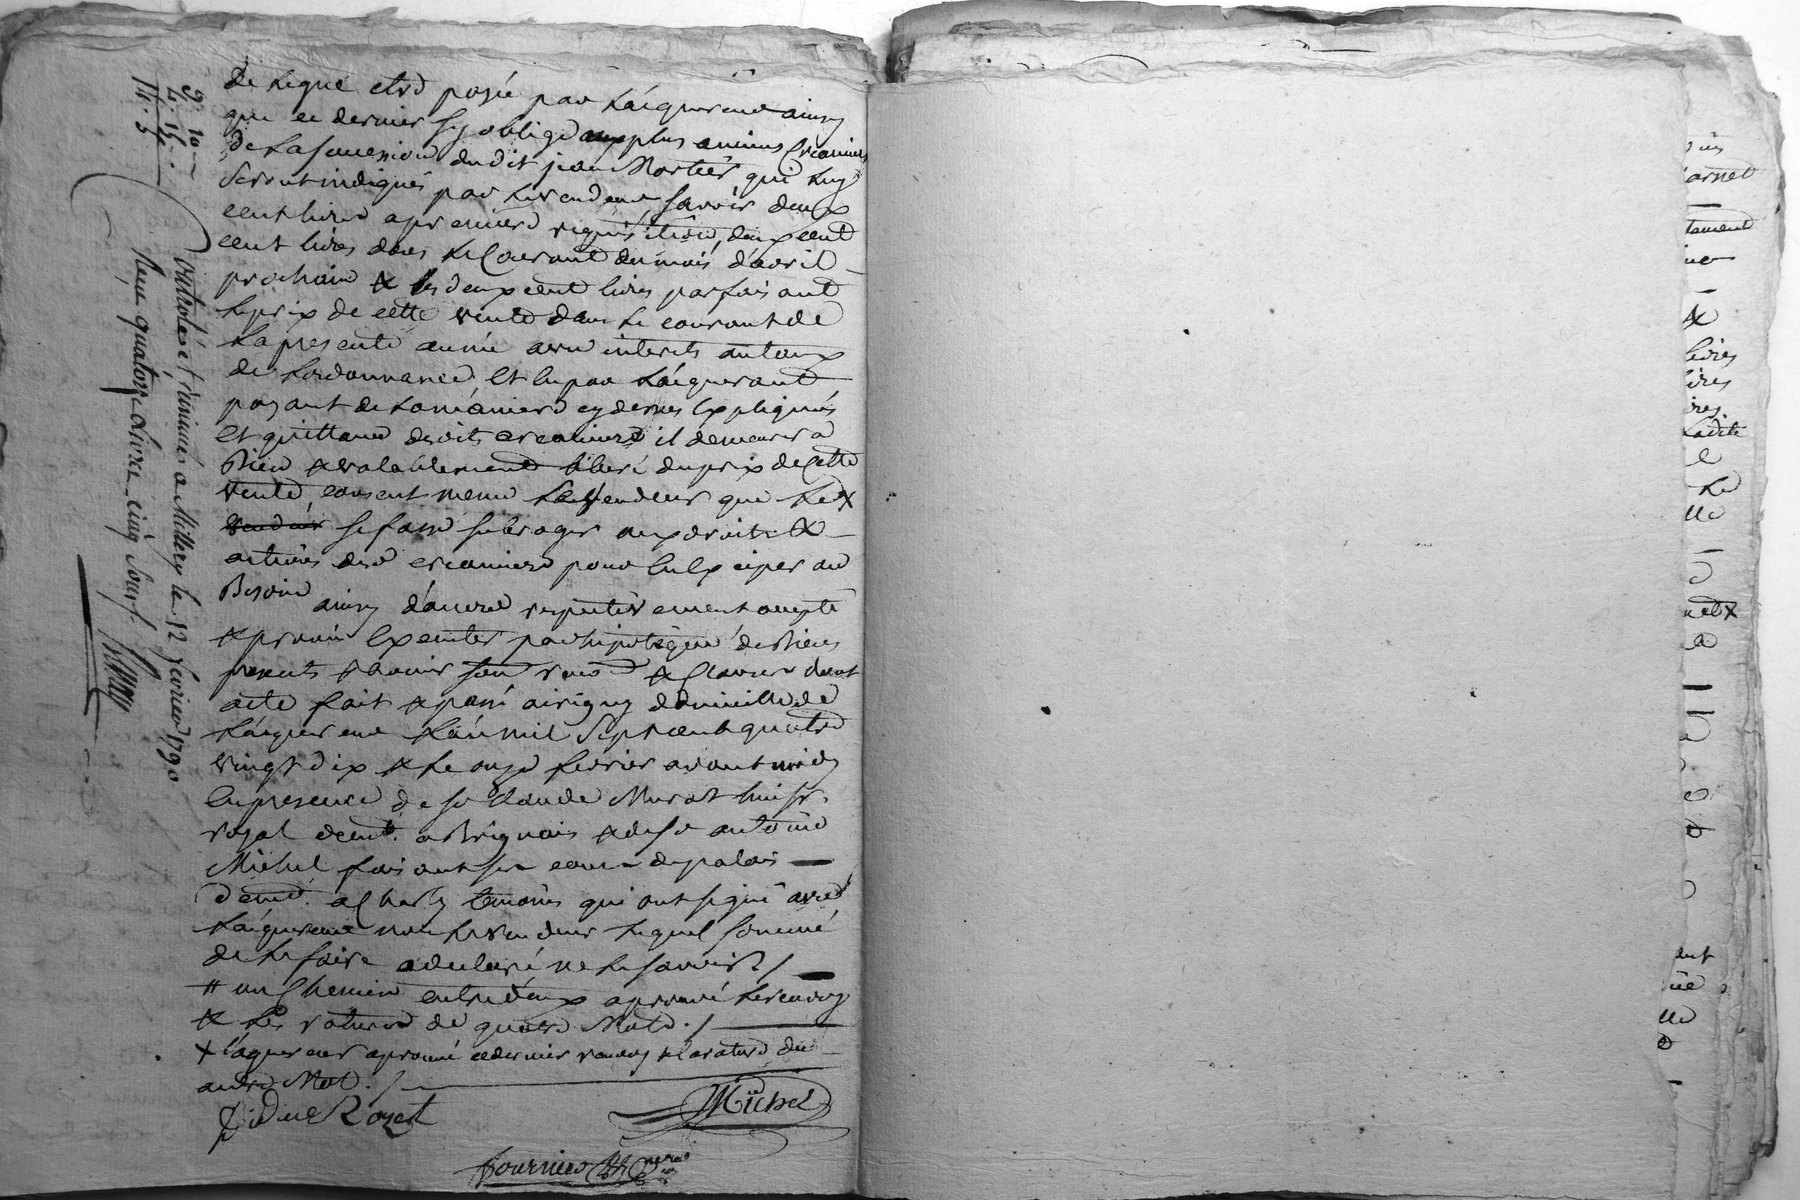 de laquelle sera payée par l'aiquereur ainsy
que ce dernier s'y oblige aux plus anciens creanciers
de la succession dudit jean Mortier qui luy
seront indiqués par le vendeur, savoir deux
cent livres a premiere requisition, deux cent
cent livres dans le courant du mois d'avril
prochain & les deux cent livres parfaisant
le prix de cette vente dans le courant de
la presente année avec interets au taux
de l'ordonnance, et en par l'aiquerant
payant de la maniere cy dessus expliquée
et quittance desdits creanciers il demeurera
bien & valablement liberé du prix de cette
vente consent meme le vendeur que le x
vendeur se fasse subroger aux droits &
actions desd creanciers pour en exciper au
besoin ainsy d'accord respectivement accepté
& promis executer par hipoteque de biens
presents & avenir sous renon & clauses dont
acte fait & passé a irigny domicille de
l'aiquereur l'an mil sept cent quatre
vingt dix & le onze fevrier avant midy
en presence de sr Claude Murat huissr
royal demt. a Brignais & de sr antoine
Michel faisant sr cour du palais
demt. a Charly temoins qui ont signé avec
l'aiquereur non le vendeur lequel sommé
de le faire a declaré ne le savoir /
# un Chemin entre deux aprouvé le renvoy
& les ratures de quatre Mots. /
x l'aquereur aprouvé ce dernier renvoy & la rature du
autre Mot. /
Roset
Michel
Fournier
9. 10
4. 15.
14. 5
Controlé et insinué a Millery le 12 fevrier 1790
Reçu quatorze livres cinq sous